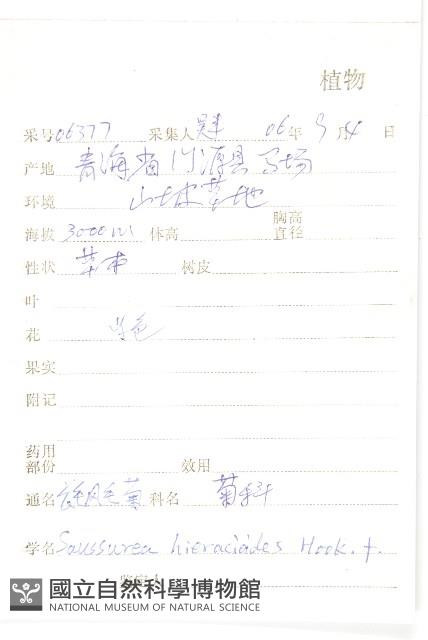 植物
采号 06377 采集人 06年 9月 4日
产地 青海省门源县马场
环境 山坡草地
胸高
海拔 3000m 体高 直径
性状 草本 树皮
叶
花 色
果实
附记
药用
部份 效用
通名 科名 菊科
学名 Saussurea hieracioides Hook. f.
鉴定人
國立自然科學博物館
NATIONAL MUSEUM OF NATURAL SCIENCE